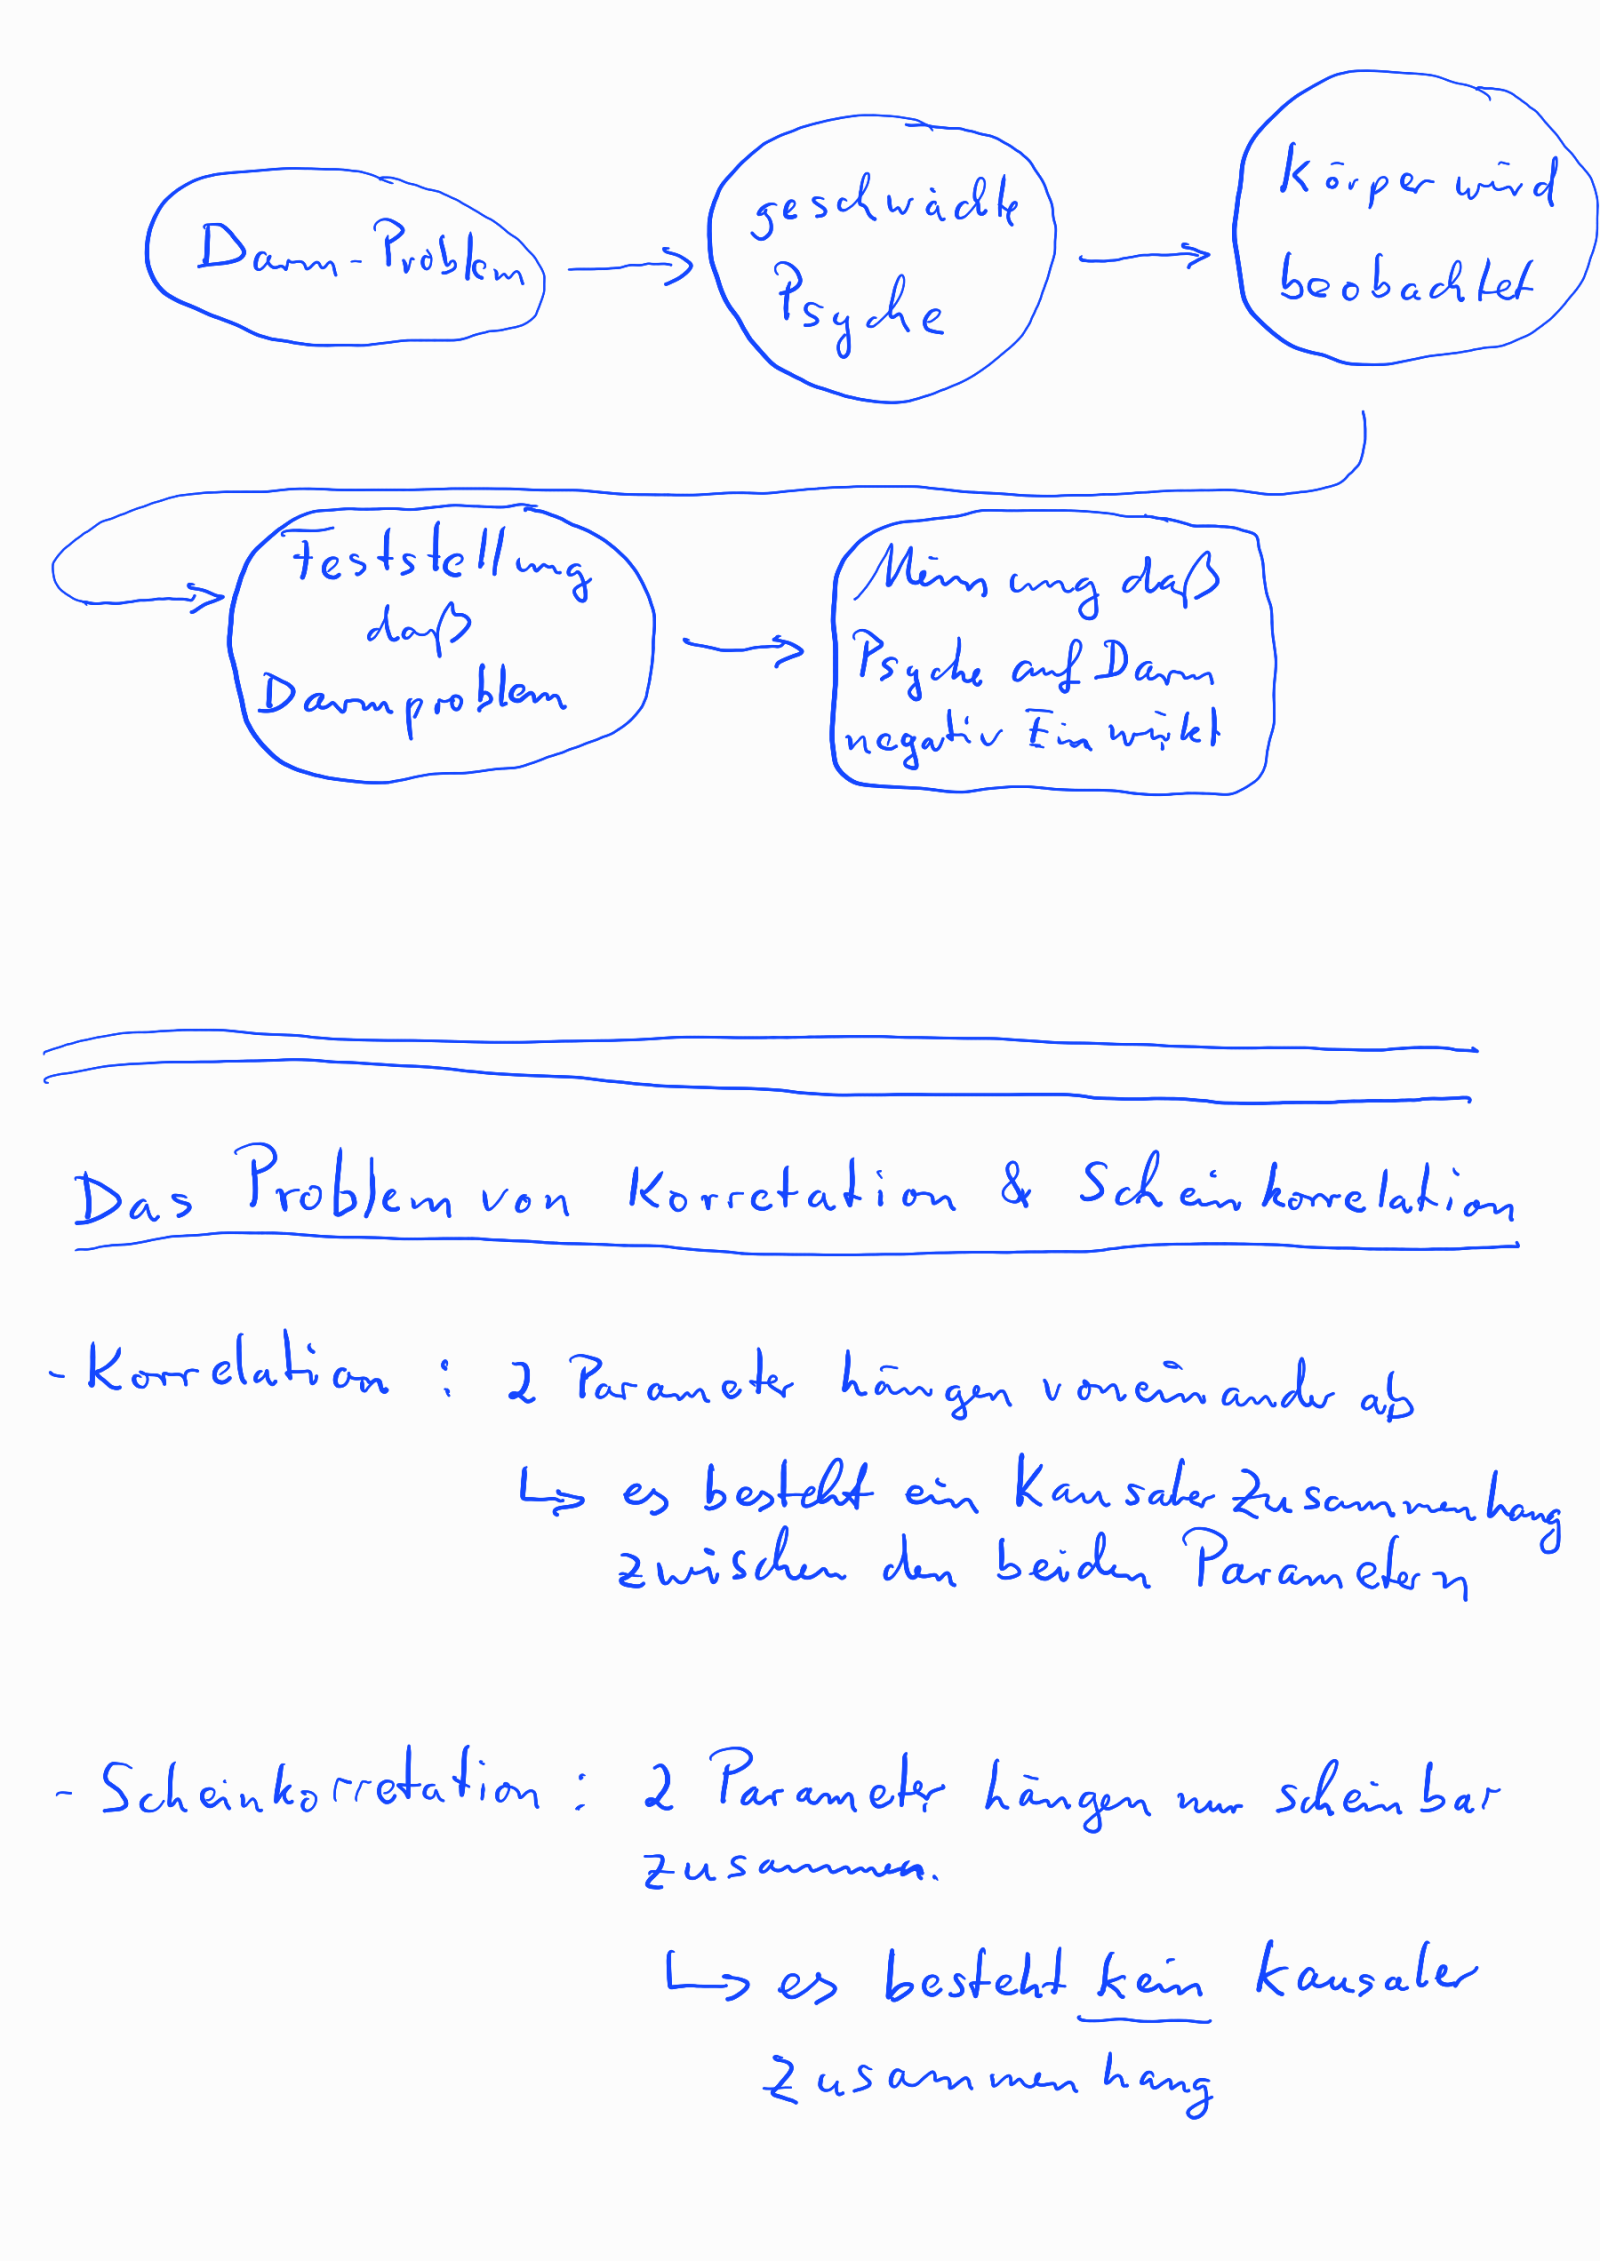 Darm-Problem
geschwächte
Psyche
Körper wird
beobachtet
Feststellung
daß
Darmproblem
Meinung daß
Psyche auf Darm
negativ Einwirkt
Das Problem von Korrelation & Scheinkorrelation
- Korrelation : 2 Parameter hängen voneinander ab
↳ es besteht ein Kausaler Zusammenhang
zwischen den beiden Parametern
- Scheinkorrelation : 2 Parameter hängen nur scheinbar
zusammen.
↳ es besteht kein Kausaler
Zusammenhang